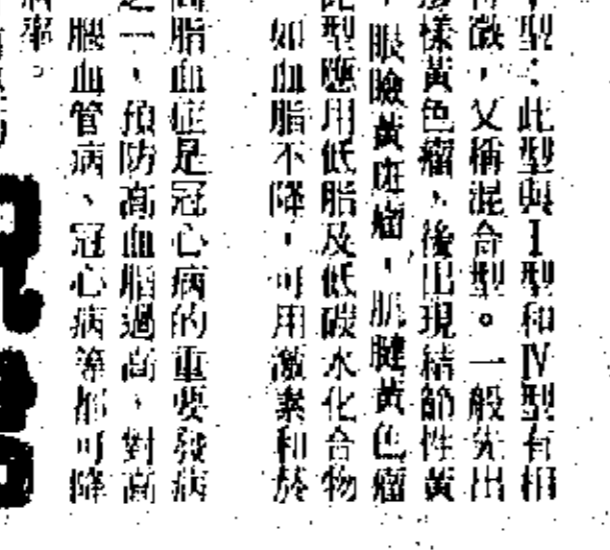 型：此型與I型和IV型有相
徵，又稱混合型。一般先出
樣黃色瘤，後出現結節性黃
，眼瞼黃斑瘤，肌腱黃色瘤
型應用低脂及低碳水化合物
如血脂不降，可用激素和菸
脂血症是冠心病的重要發病
之一，預防高血脂過高，對高
腦血管病、冠心病等都可降
病率。